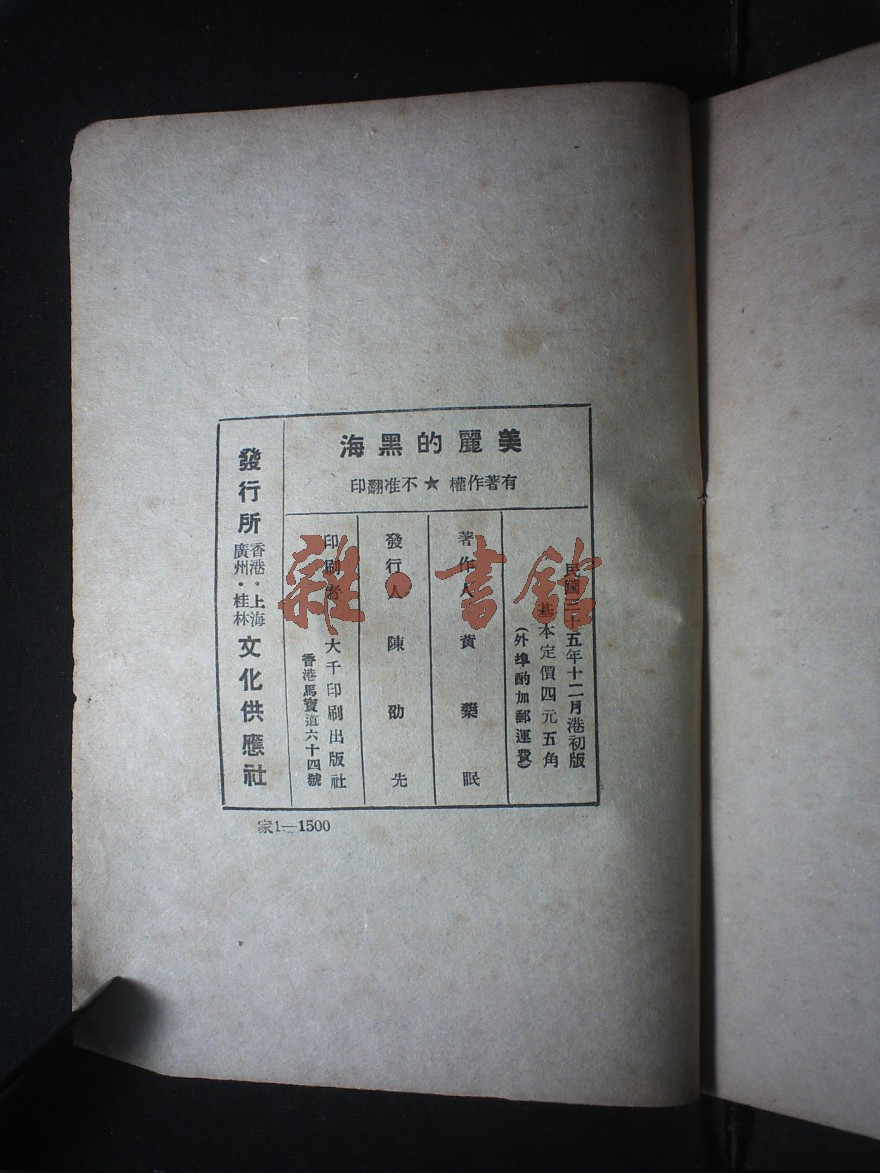 美麗的黑海
有著作權★不准翻印
民國三十五年十二月港初版
基本定價四元五角
(外埠酌加郵運費)
著作人 黄藥眠
發行人 陳劭先
印刷者 大千印刷出版社
香港馬寶道六十四號
發行所 香港·上海 廣州·桂林 文化供應社
家1—1500
雜·書館